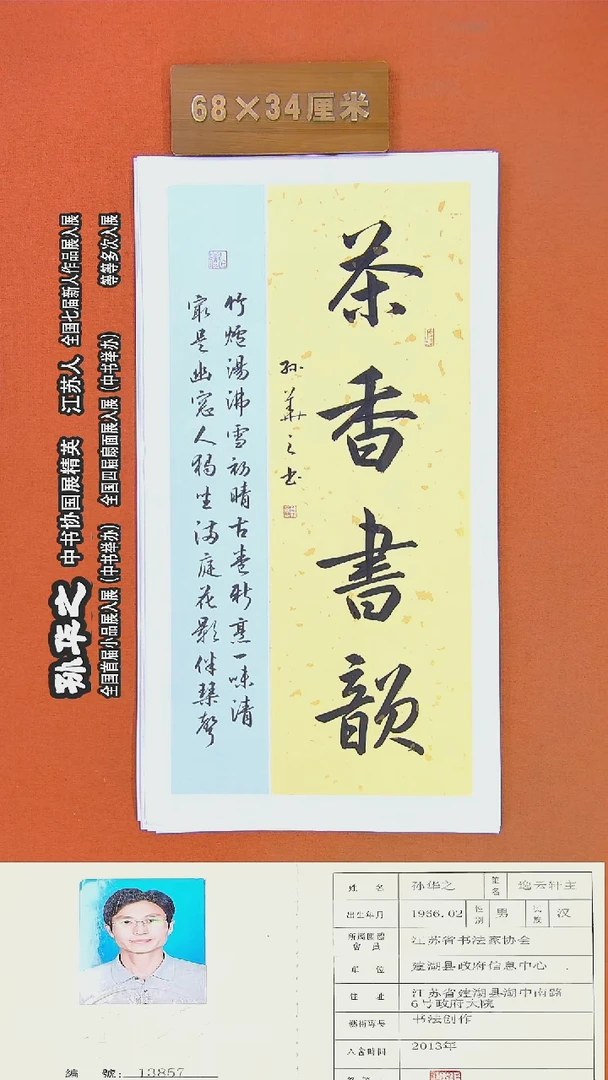 68×34厘米
茶香書韻
孙华之书
竹爐湯沸雪初晴古卷新烹一味清
最是幽窓人獨坐满庭花影伴琴聲
孙华之 中书协国展精英 江苏人 全国七届新人作品展入展
全国首届小品展入展(中书举办) 全国四届扇面展入展(中书举办) 等等多次入展
姓名 孙华之 笔名 逸云轩主
出生年月 1956.02 性别 男 民族 汉
江苏省书法家协会
單位 建湖县政府信息中心
住址 江苏省建湖县湖中南路
6号政府大院
书法创作
入會時間 2013年
编號: 13857